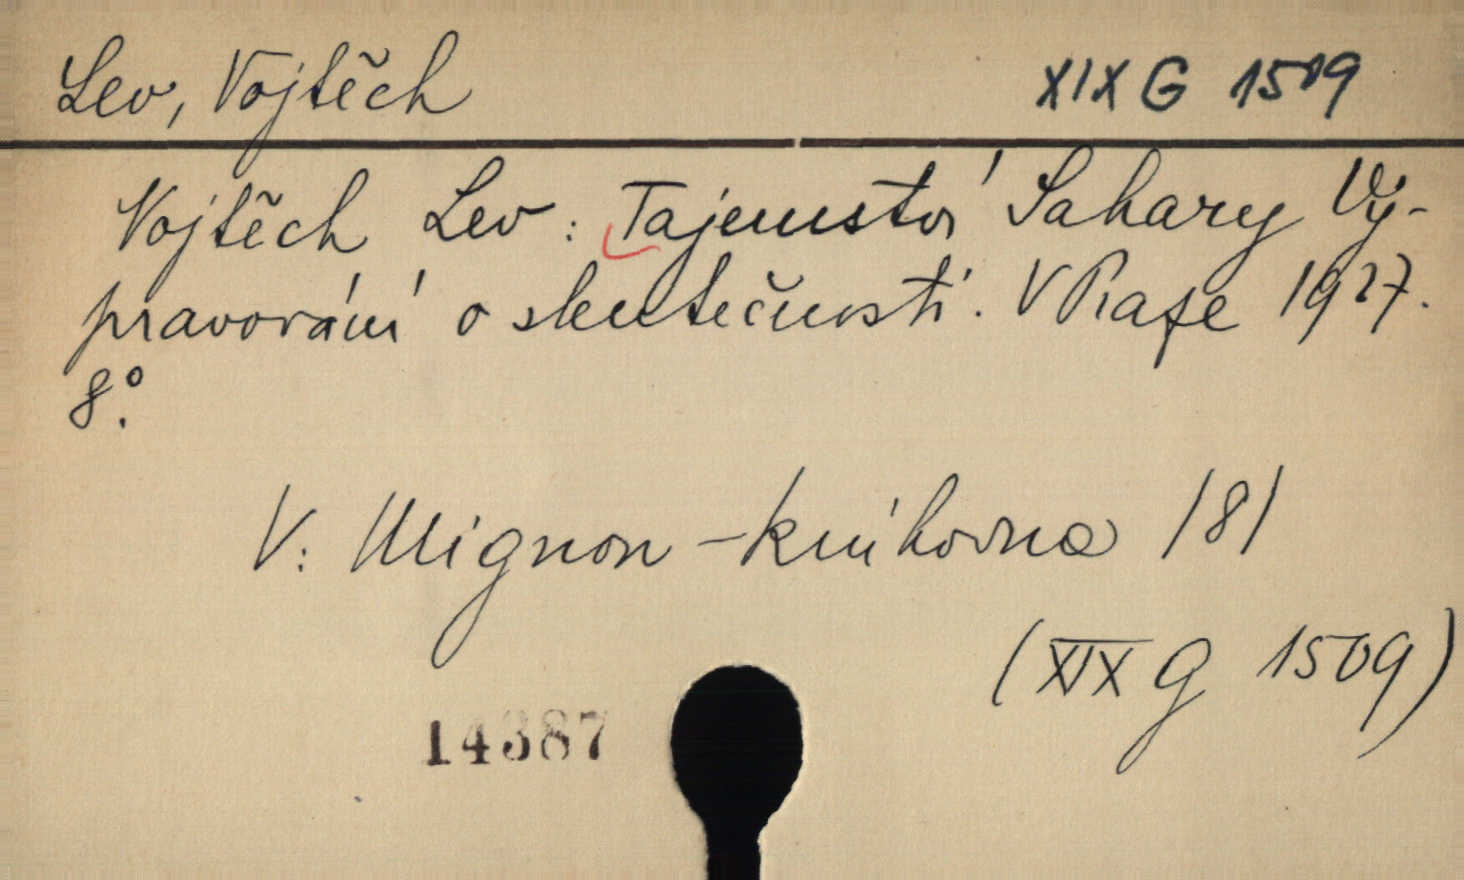 Lev, Vojtěch
XIX G 1509
Vojtěch Lev: Tajemství Sahary Vy-
pravování o skutečnosti. V Praze 1927.
8°.
V: Mignon-knihovna 181
(XIX G 1509)
14387